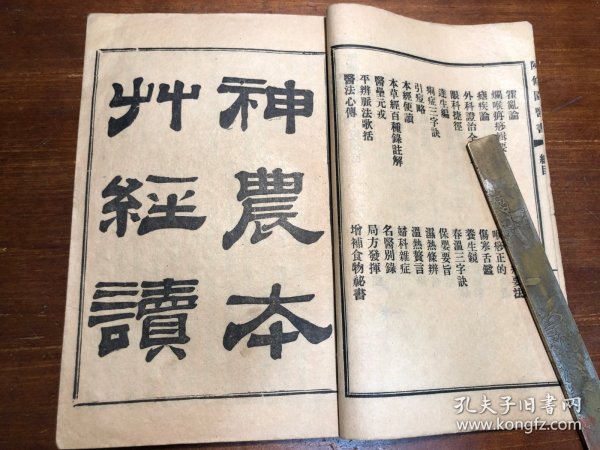 霍亂論
爛喉痧疹輯要
痰疾論
外科證治全
眼科捷徑
達生編
痢症三字訣
引痘略
本經便讀
本草經百種錄註解
醫壘元戎
平辨脈法歌括
醫法心傳
喉痧正的
傷寒舌鑑
養生鏡
春溫三字訣
保嬰要旨
濕熱條辨
溫熱贅言
婦科雜症
名醫別錄
局方發揮
增補食物祕書
神農本
艸經讀
孔夫子旧书网
www.kongfz.com